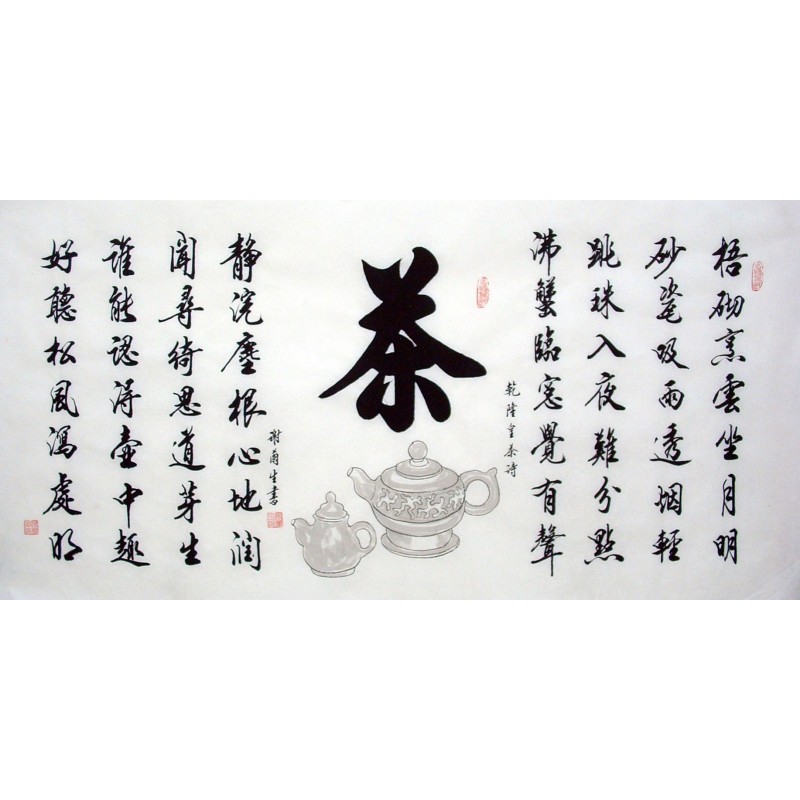 梧砌烹雲坐月明
砂瓷吸雨透烟輕
跳珠入夜難分點
沸蟹臨窓覺有聲
乾隆皇茶詩
茶
静浣塵根心地潤
聞尋綺思道芽生
誰能認得壺中趣
好聽松風瀉處明
謝蘭生書